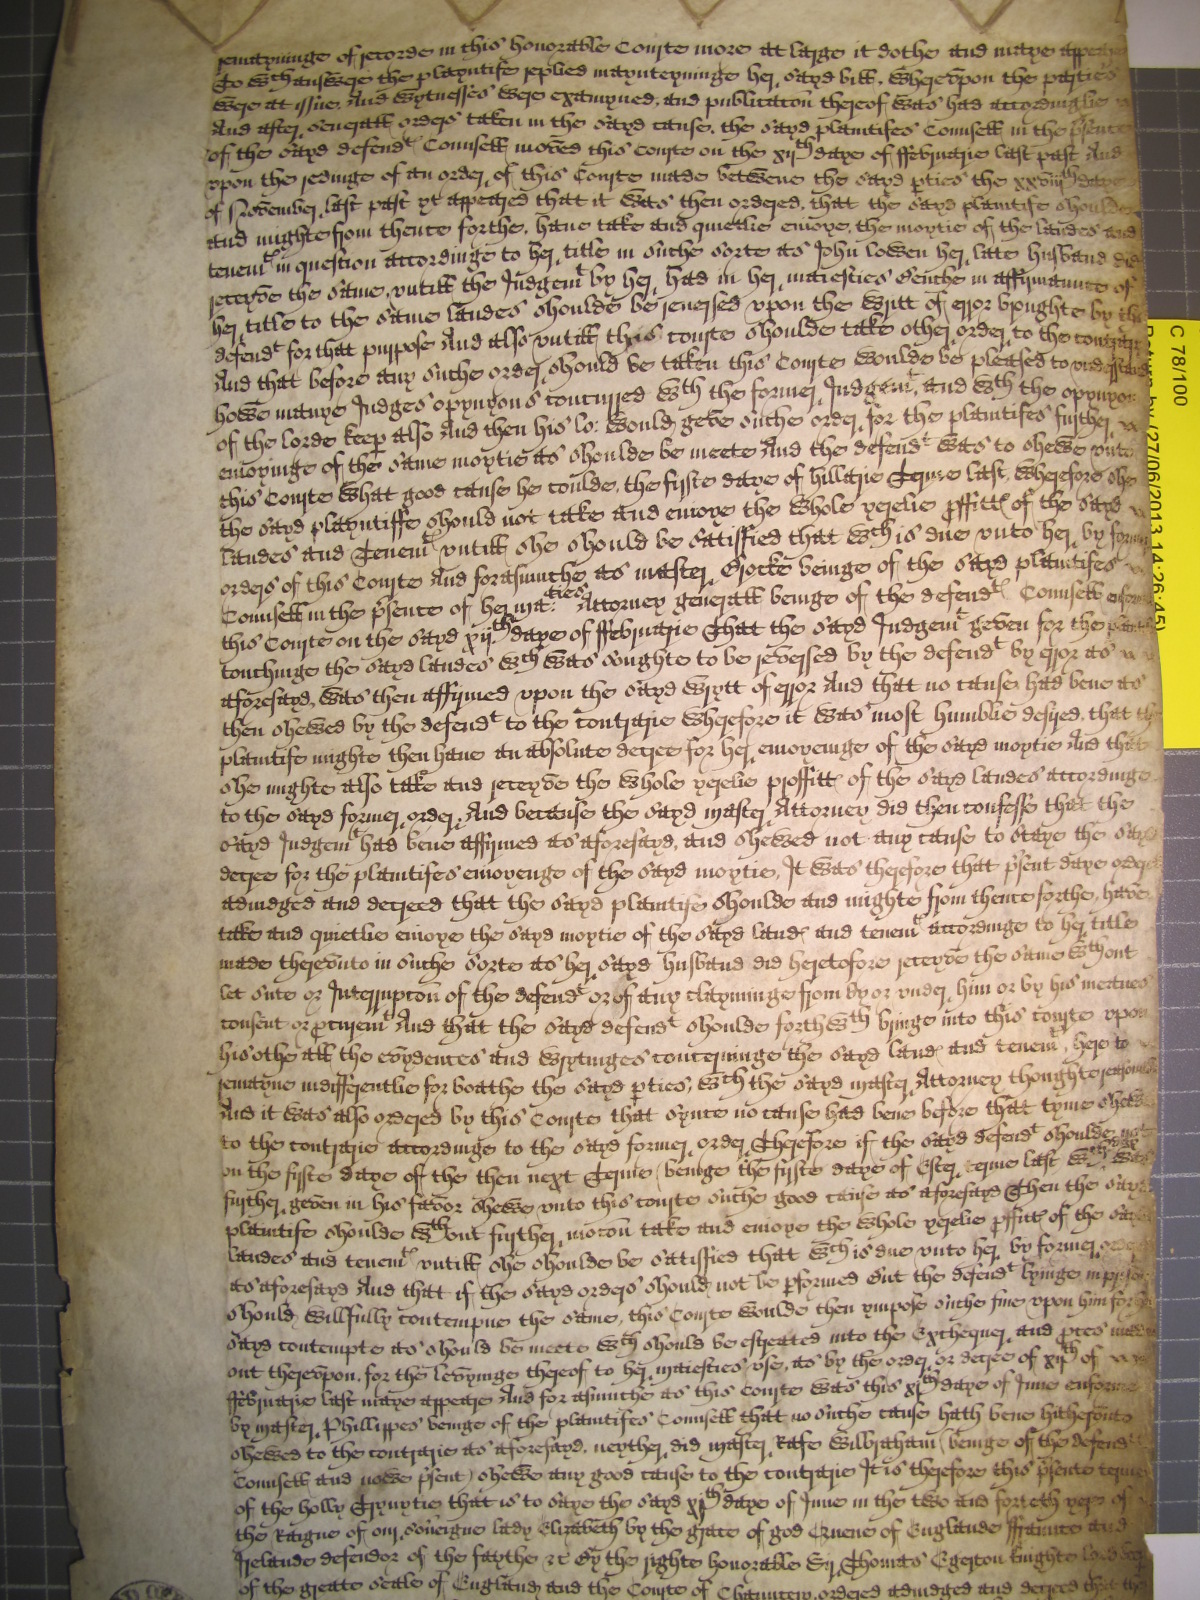 remayninge of recorde in this honorable Courte more at large it dothe and maye appeare
To wch answere the playntife replied maynteyninge her sayd bill, Whereupon the parties
were at issue, And wytnesses were examyned, and publicacon thereof was had accordinglie
And after severall orders taken in the sayd cause, the sayd plaintifes Counsell in the psence
of the sayd defendt Counsell moved this Courte on the xijth daye of ffebruarie last past And
upon the redinge of an order of this Courte made betwene the sayd pties the xxviijth daye
of November last past yt appeared that it was then ordered, that the sayd plaintife shoulde
and mighte from thence forthe, have take and quietlie enioye the moytie of the landes and
tenemt in question accordinge to her title in suche sorte as John Lowen her late husband did
receyve the same, untill the Judgemt by her had in her maiesties Benche in affyrmaunce of
her title to the same landes shoulde be reversed upon the Wrytt of error broughte by the
defendt for that purpose And also untill this courte shoulde take other order to the contrarie
And that before any suche order should be taken this Courte woulde be pleased to understand
howe manye Judges opynyons concurred wth the former Judgemt, and wth the opynyon
of the lorde keep also And then his lo: would geve suche order for the plaintifes further
enioyinge of the same moytie as shoulde be meete And the defendt was to shewe unto
this Courte what good cause he coulde, the firste daye of hillarie Terme last, Wherefore she
the sayd playntiffe should not take and enioye the whole yerelie pffitt of the sayd
landes and Tenemt untill she should be satisfied that wch is due unto her by former
orders of this Courte And forasmuche as master Crocke beinge of the sayd plaintifes
Counsell in the psence of her ma:ties Attorney generall beinge of the defendt Counsell enformed
this Courte on the sayd xijth daye of ffebruarie That the sayd Judgemt geven for the plaintife
touchinge the sayd landes wch was soughte to be reversed by the defendt by error as
aforesayd, was then affirmed upon the sayd wrytt of error And that no cause had bene as
then shewed by the defendt to the contrarie Wherefore it was most humblie desired, that the
plaintife mighte then have an absolute decree for her enioyeinge of the sayd moytie And that
she mighte also take and receyve the whole yerelie proffitt of the sayd landes accordinge
to the sayd former order, And because the sayd master Attorney did then confesse that the
sayd Judgemt had bene affirmed as aforesayd, and shewed not any cause to staye the sayd
decree for the plaintifes enioyenge of the sayd moytie, It was therefore that psent daye ordered
adiudged and decreed that the sayd plaintife shoulde and mighte from thence forthe, have
take and quietlie enioye the sayd moytie of the sayd land and tenemt accordinge to her title
made thereunto in suche sorte as her sayd husband did heretofore receyve the same wthout
let sute or Interrupcon of the defendt or of any clayminge from by or under him or by his meanes
consent or pcuremt And that the sayd defendt shoulde forthwth bringe into this courte upon
his othe all the evydences and wrytinges concerninge the sayd land and tenemt, here to
remayne indifferentlie for boathe the sayd pties, wch the sayd master Attorney thoughte reasonable
And it was also ordered by this Courte that synce no cause had bene before that tyme shewed
to the contrarie accordinge to the sayd former order Therefore if the sayd defendt shoulde not
on the firste daye of the then next Terme (beinge the firste daye of Ester terme last wch was
further geven in his favor shewe unto this courte suche good cause as aforesayd Then the sayd
plaintife shoulde wthout further mocon take and enioye the whole yerelie pffitt of the sayd
landes and tenemt untill she shoulde be satisfied that wch is due unto her by former orders
as aforesayd And that if the sayd orders should not be pformed but the defendt lyinge in prison
should willfully contempne the same, this Courte woulde then ympose suche fine upon him for his
sayd contempte as should be meete wch should be estreated into the Exchequer and proces made
out thereupon, for the levyinge thereof to her maiesties use, as by the order or decree of xijth of
ffebruarie last maye appeare And for asmuche as this courte was this xjth daye of June enformed
by master Phillippes beinge of the plaintifes Counsell that no suche cause hath bene hitherunto
shewed to the contrarie as aforesayd, neyther did master Rafe Wilbraham (beinge of the defendt
Counsell and nowe psent) shewe any good cause to the contrarie It is therefore this psente terme
of the holly Trynytie that is to saye the sayd xjth daye of June in the two and forteth yere of
the Raigne of our soveigne lady Elizabeth by the grace of god Quene of Englande ffraunce and
Irelande defendor of the faythe &c By the righte honorable Sir Thomas Egerton knighte lord keep
of the greate seale of England and the Courte of Chauncery, ordered adiudged and decreed that the
C 78/100
Return by (27/06/2013 14:26:45)